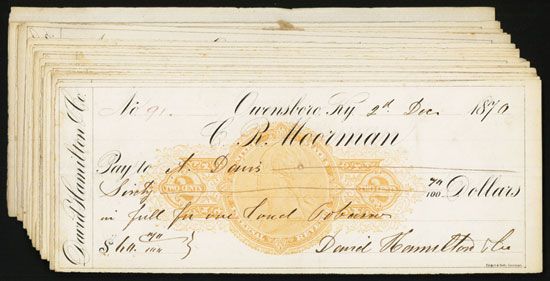 David Hamilton Co.
No 91. Owensboro, Ky 2d Dec 1870
C. R. Moorman
Pay to A. Davis
Sixty 70/100 Dollars
in full for one Load Tobacco
$60 70/100
David Hamilton & Co
TWO CENTS
2